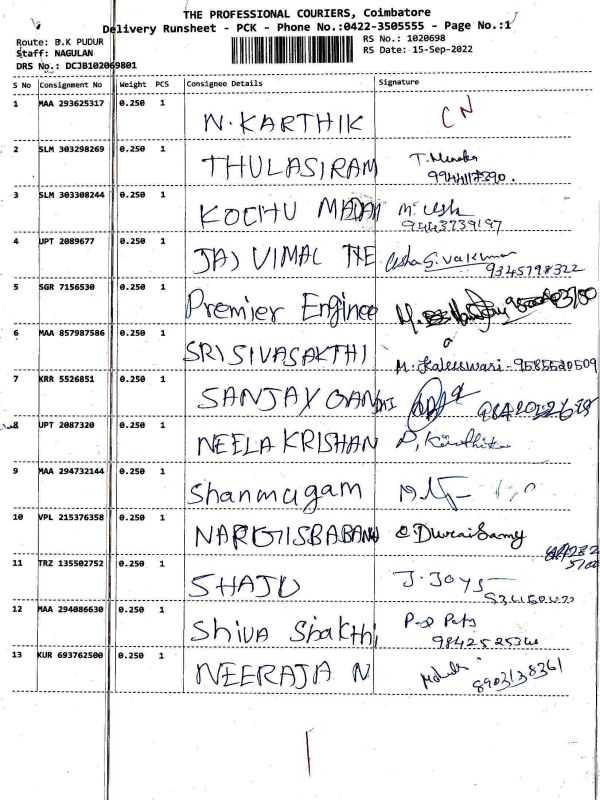 THE PROFESSIONAL COURIERS, Coimbatore
Delivery Runsheet - PCK - Phone No.:0422-3505555 - Page No.:1
Route: B.K PUDUR RS No.: 1020698
Staff: NAGULAN RS Date: 15-Sep-2022
DRS No.: DCJB102069801
S No Consignment No Weight PCS Consignee Details Signature
1 MAA 293625317 0.250 1 N.KARTHIK CN
2 SLM 303298269 0.250 1 THULASIRAM
3 SLM 303308244 0.250 1 KOCHU MADAN M. Usha
9443739197
4 UPT 2089677 0.250 1 JAI VIMAL THE Sivakumar
9345798322
5 SGR 7156530 0.250 1 Premier Enginee
6 MAA 857987586 0.250 1 SRI SIVASAKTHI M. Kaleeswari - 9585520509
7 KRR 5526851 0.250 1 SANJAY GANDHI
8 UPT 2087320 0.250 1 NEELA KRISHAN P. Karthika
9 MAA 294732144 0.250 1 Shanmugam
10 VPL 215376358 0.250 1 NARGISBABANU Duraisamy
11 TRZ 135502752 0.250 1 SHAJU J. Joys
12 MAA 294086630 0.250 1 Shiva Shakthi
13 KUR 693762500 0.250 1 NEERAJA N
8903138361